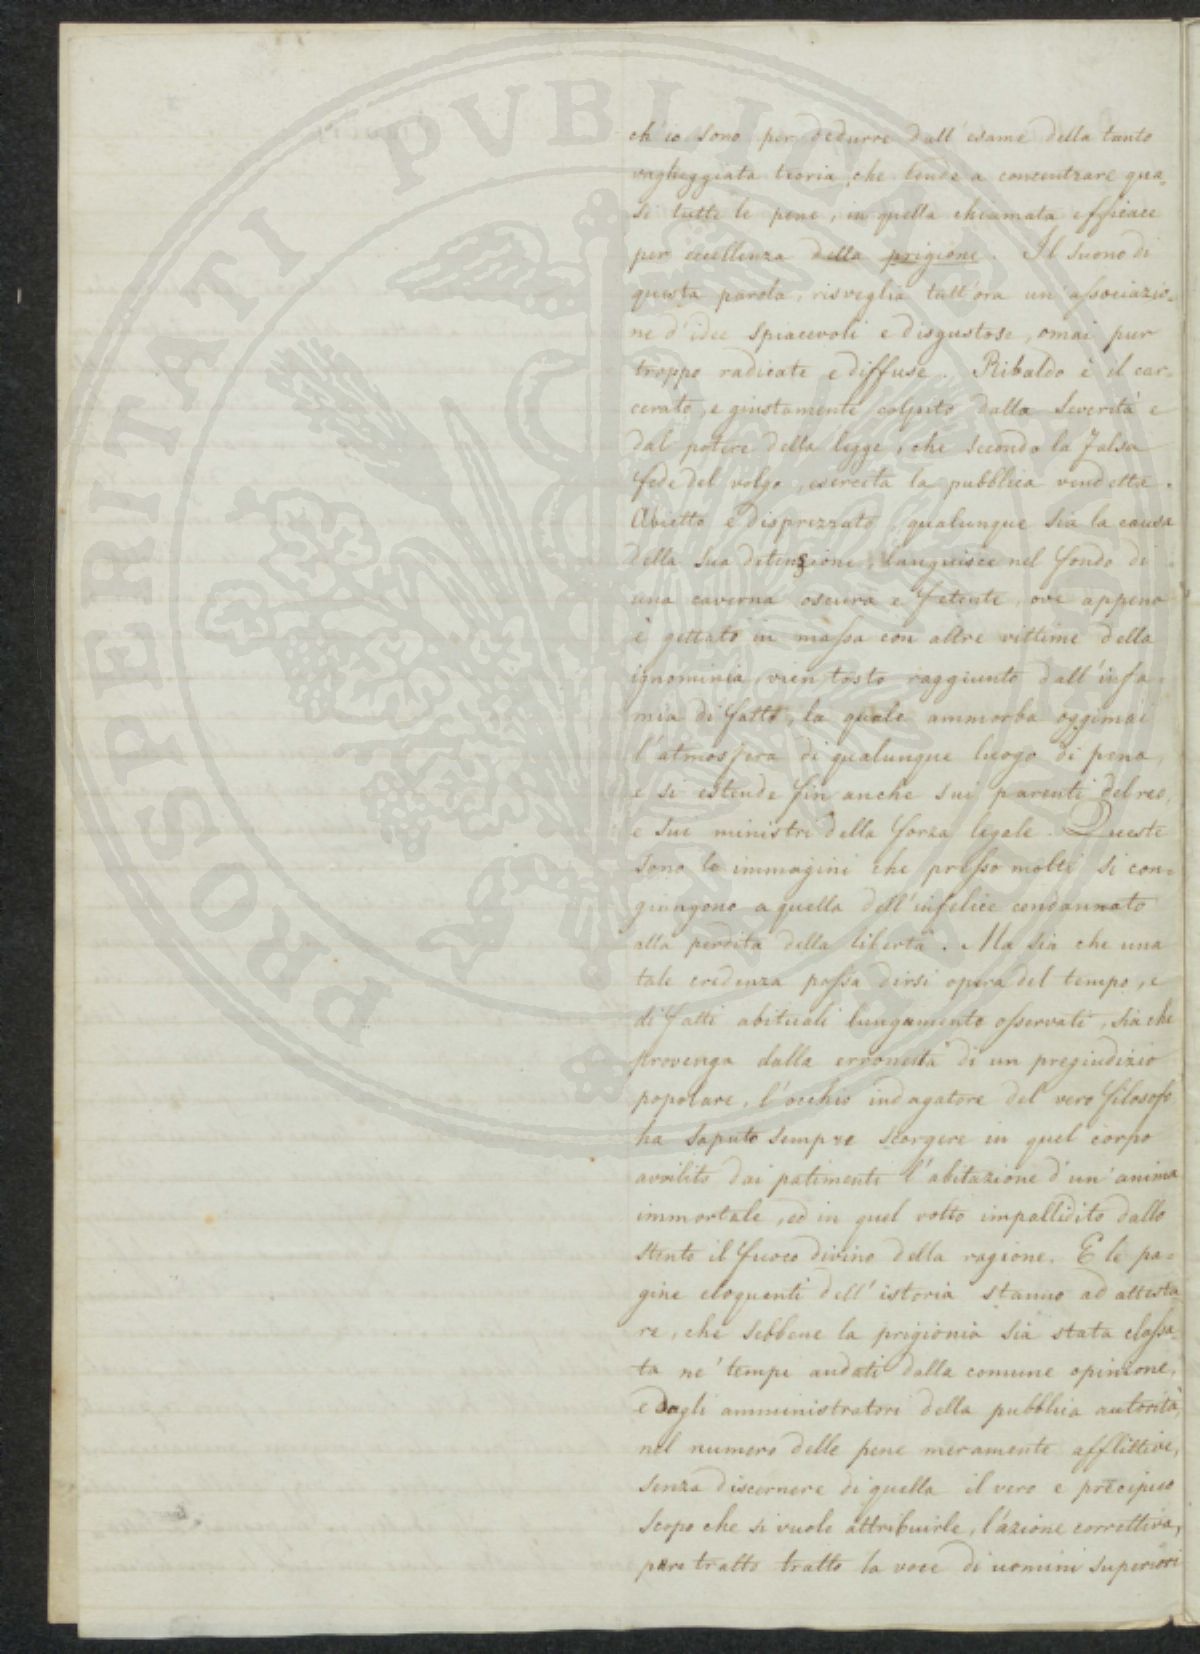 PROSPERITATI PVBLICAE
ch'io sono per dedurre dall'esame della tanto
vagheggiata teoria, che tende a concentrare qua-
si tutte le pene, in quella chiamata efficace
per eccellenza della prigione. Il suono di
questa parola, risveglia tutt'ora un'associazio-
ne d'idee spiacevoli e disgustose, omai pur
troppo radicate e diffuse. Ribaldo è il car-
cerato, e giustamente colpito dalla severità e
dal potere della legge, che secondo la falsa
fede del volgo, esercita la pubblica vendetta.
Abietto e disprezzato, qualunque sia la causa
della sua detenzione, languisce nel fondo di
una caverna oscura e fetente, ove appena
è gettato in massa con altre vittime della
ignominia, vien tosto raggiunto dall'infa-
mia di fatto, la quale ammorba oggimai
l'atmosfera di qualunque luogo di pena,
e si estende fin anche sui parenti del reo,
e sui ministri della forza legale. Queste
sono le immagini che presso molti si con-
giungono a quella dell'infelice condannato
alla perdita della libertà. Ma sia che una
tale credenza possa dirsi opera del tempo, e
di fatti abituali lungamente osservati, sia che
provenga dalla erroneità di un pregiudizio
popolare, l'occhio indagatore del vero filosofo
ha saputo sempre scorgere in quel corpo
avvilito dai patimenti l'abitazione d'un'anima
immortale, ed in quel volto impallidito dallo
stento il fuoco divino della ragione. E le pa-
gine eloquenti dell'istoria stanno ad attesta-
re, che sebbene la prigionia sia stata classa-
ta ne' tempi andati dalla comune opinione,
e dagli amministratori della pubblica autorità,
nel numero delle pene meramente afflittive,
senza discernere di quella il vero e precipuo
scopo che si vuole attribuirle, l'azione correttiva,
pure tratto tratto la voce di uomini superiori